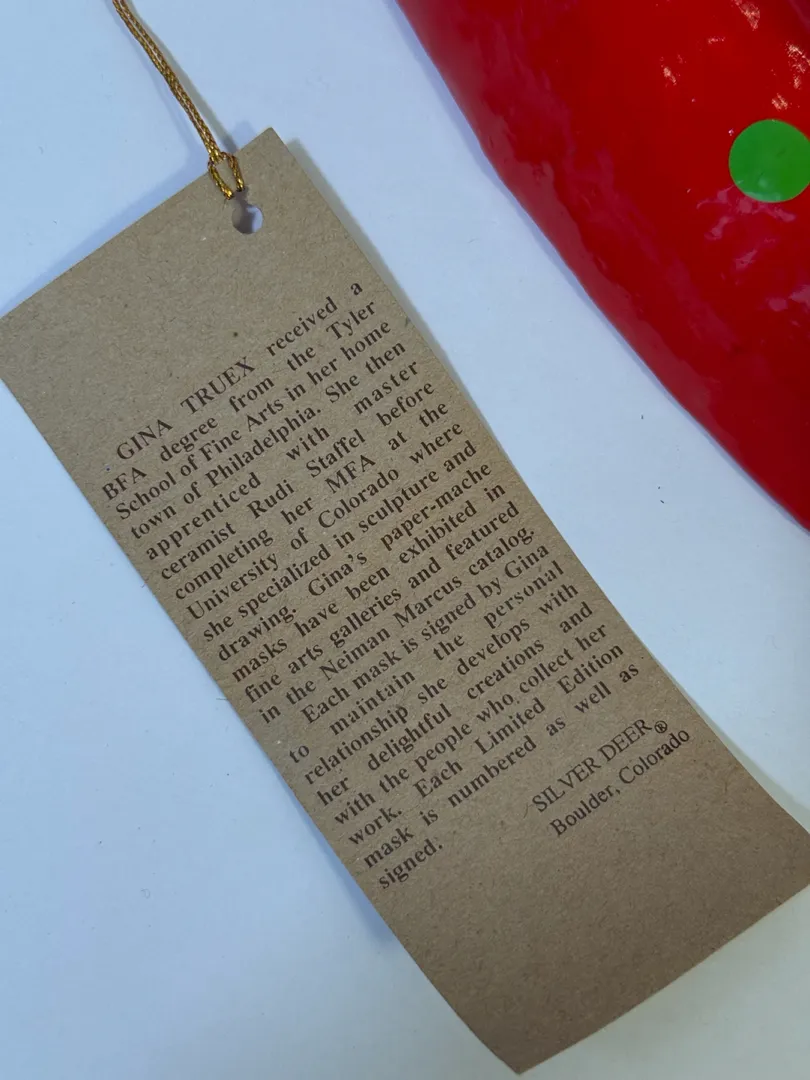 GINA TRUEX received a
BFA degree from the Tyler
School of Fine Arts in her home
town of Philadelphia. She then
apprenticed with master
ceramist Rudi Staffel before
completing her MFA at the
University of Colorado where
she specialized in sculpture and
drawing. Gina's paper-mache
masks have been exhibited in
fine arts galleries and featured
in the Neiman Marcus catalog.
Each mask is signed by Gina
to maintain the personal
relationship she develops with
her delightful creations and
with the people who collect her
work. Each Limited Edition
mask is numbered as well as
signed.
SILVER DEER®
Boulder, Colorado